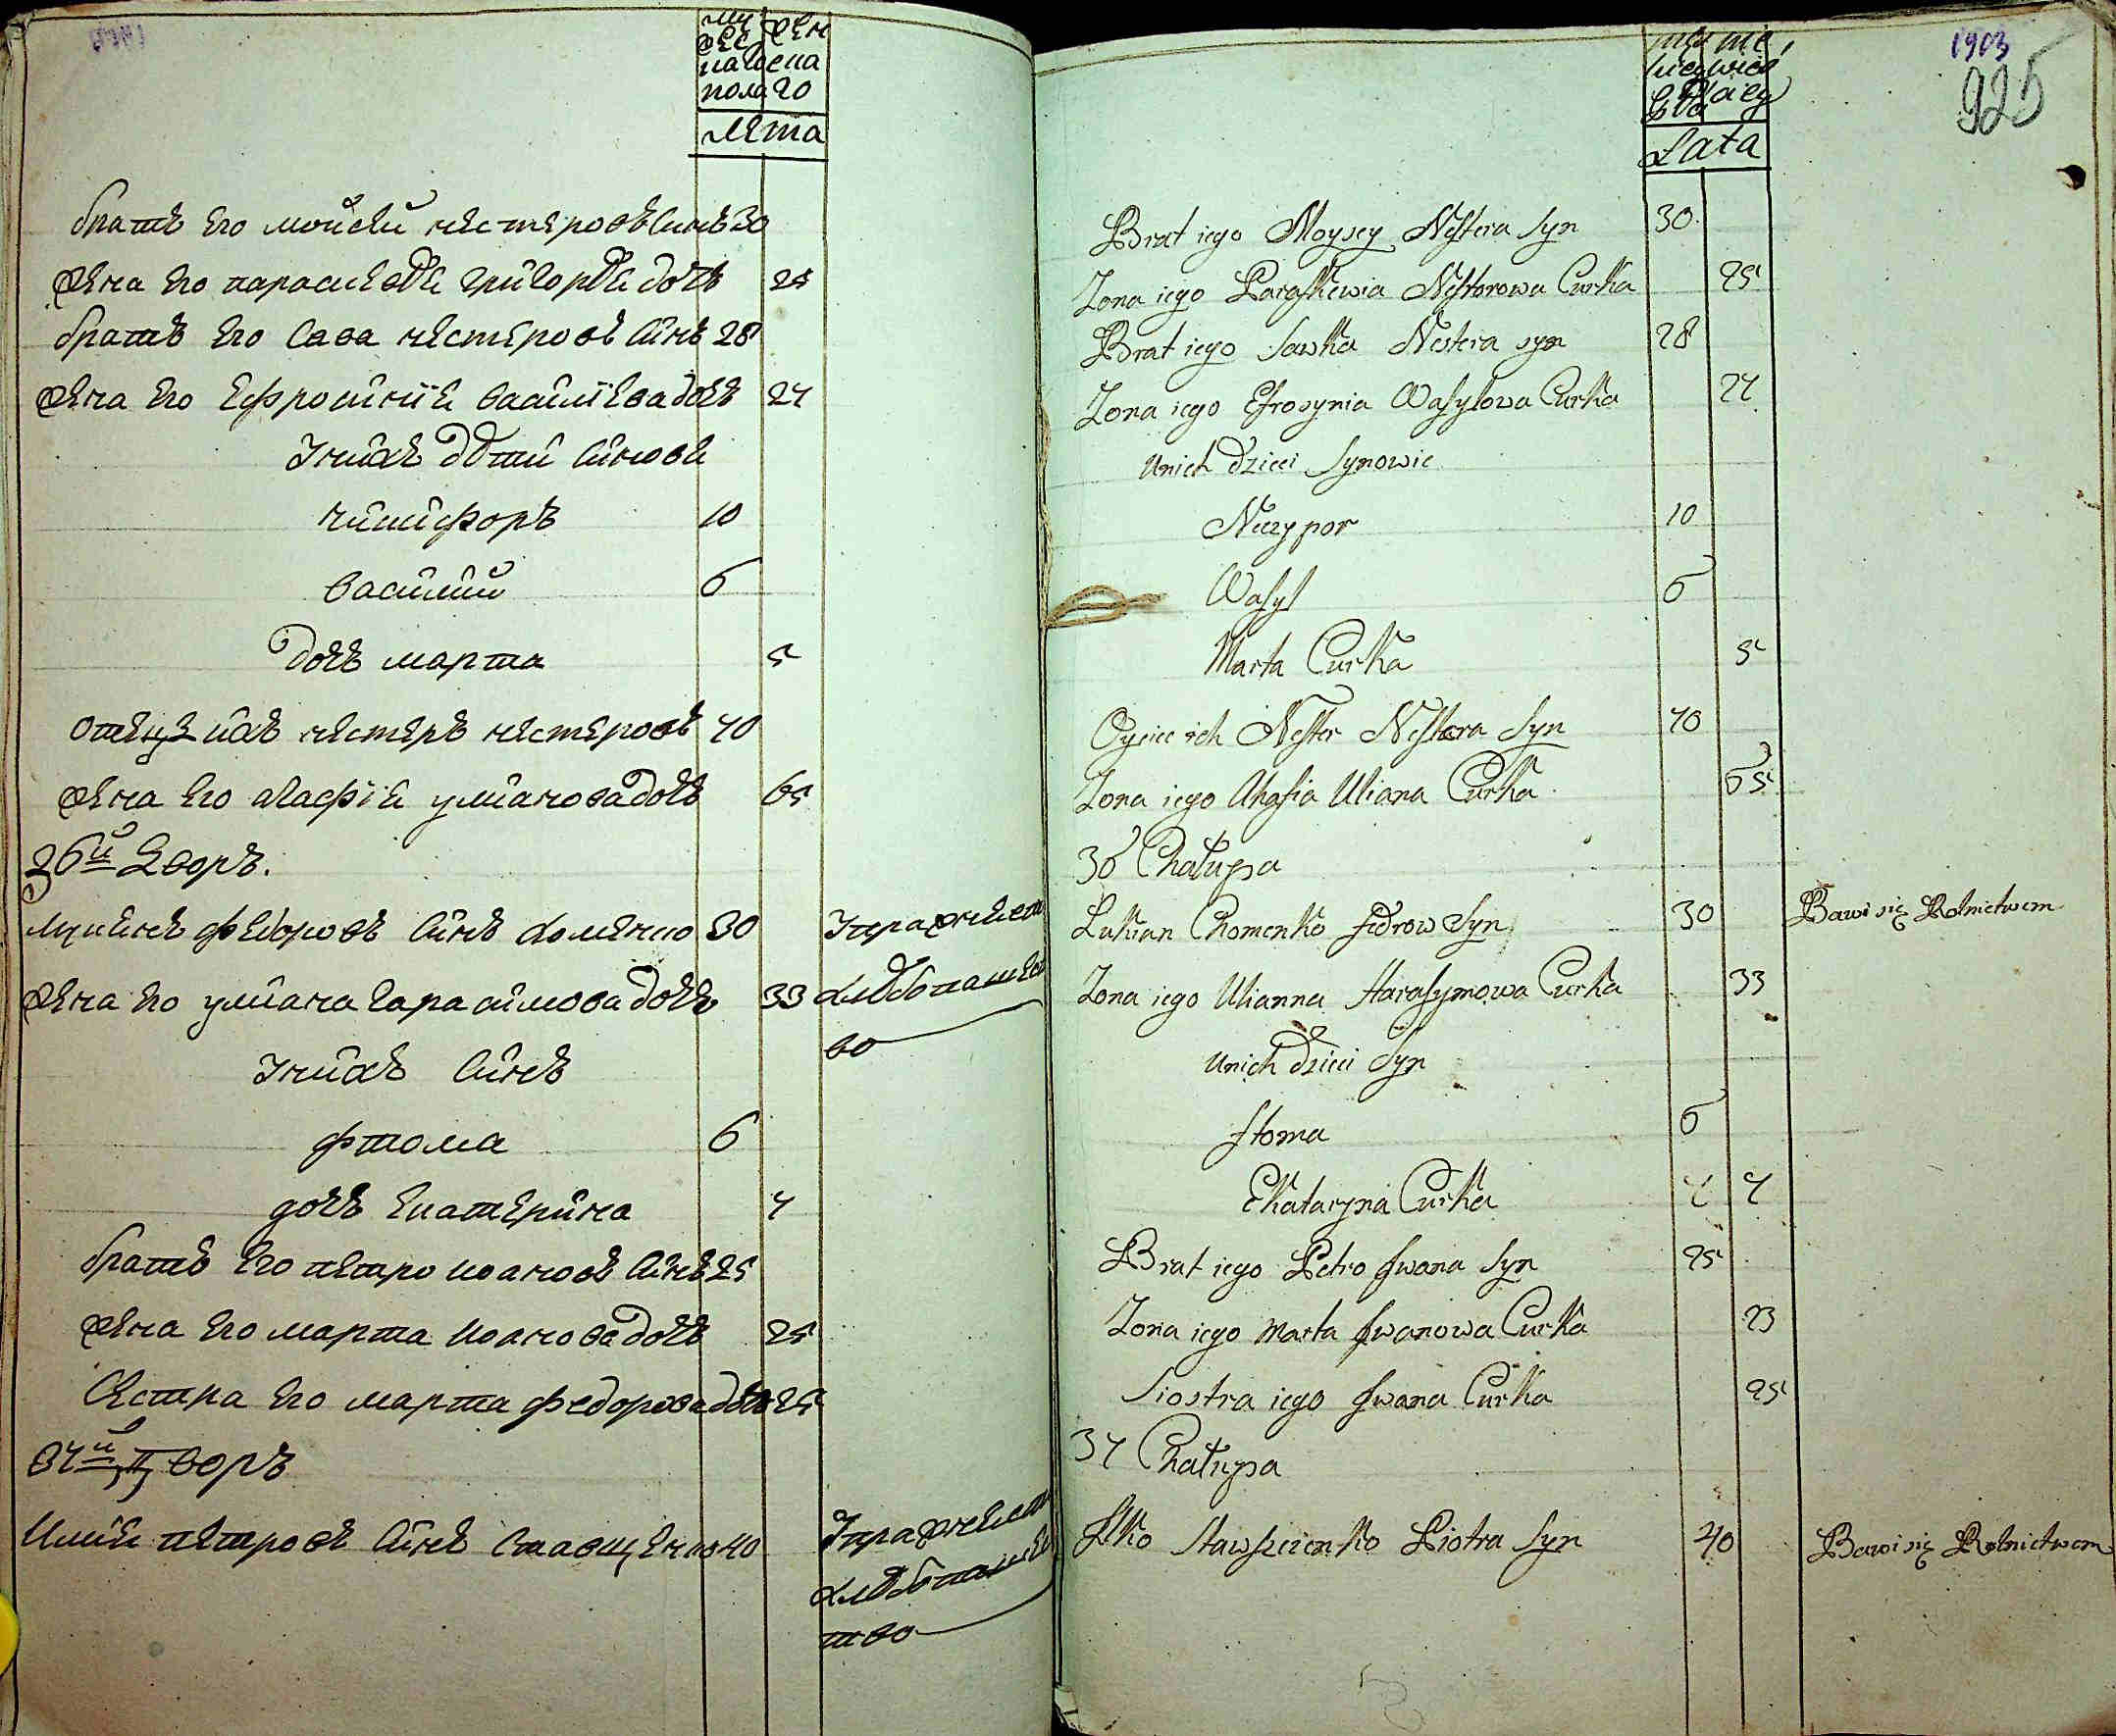 муж жен
ска ска
пола го
лѣта
братъ его мойсей нестеровъ синъ 30
жена его парасковѣя григорѣя дочъ 25
братъ его Сава нестеровъ синъ 28
жена его Ефросинія василіева дочъ 24
У нихъ дѣти синовя
никифоръ 10
василий 6
дочъ марта 5
отецъ ихъ нестеръ нестеровъ 70
жена его агафія улианова дочъ 65
36й Дворъ.
лукянъ федоровъ синъ хоменко 30 Упражняет
жена его улиана гарасимова дочъ 33 хлѣбопашест
во
У нихъ синъ
фтома 6
дочъ екатерина 4
братъ его петро ивановъ синъ 25
жена его марта иванова дочъ 25
Сестра его марта федорова дочъ 25
37й Дворъ
Илия петровъ синъ Ставщенко 40 Упражняет
хлѣбопашес
тво
1903
925
Męzkiey
Lata
Brat iego Moysey Nestera Syn 30
Zona iego Paraskewia Nestorowa Curka 25
Brat iego Sawka Nestera syn 28
Zona iego Efrosynia Wasylowa Curka 24
Unich dzieci Synowie
Niczypor 10
Wasyl 6
Marta Curka 5
Oyciec ich Nester Nestera Syn 70
Zona iego Ahafia Uliana Curka 65
36 Chałupa
Łukian Chomenko Fedrow Syn 30 Bawi się Rolnictwem
Zona iego Ulianna Harasymowa Curka 33
Unich dzieci Syn
Ftoma 6
Ekataryna Curka 4
Brat iego Petro Iwana Syn 25
Zona iego Marta Iwanowa Curka 23
Siostra iego Iwana Curka 25
37 Chałupa
Ilko Stawszczenko Piotra Syn 40 Bawi się Rolnictwem